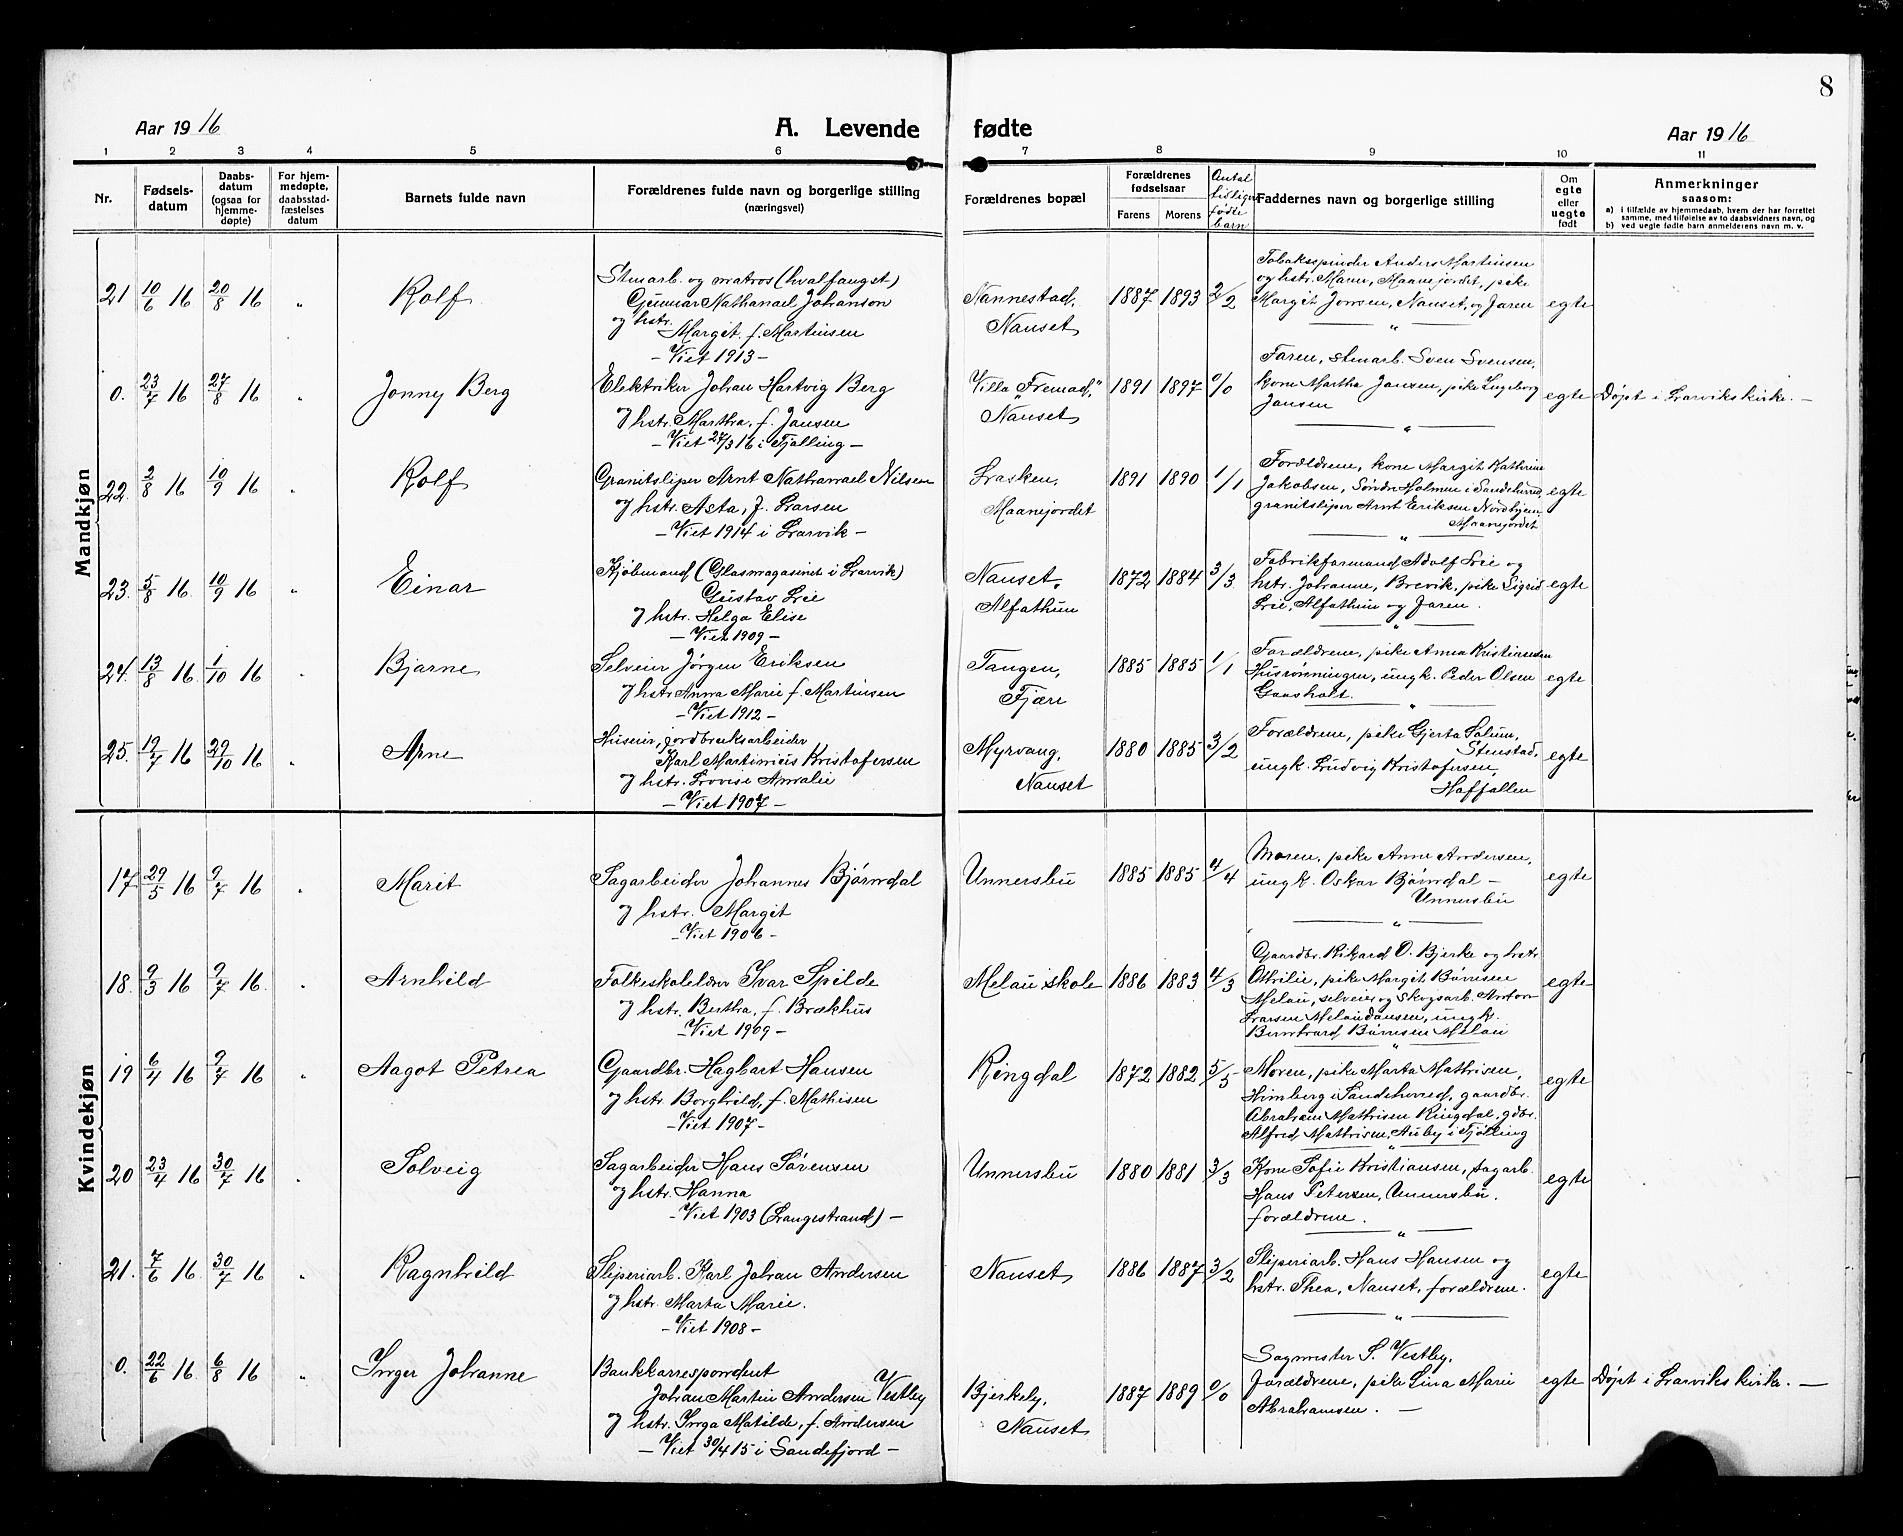 8
Aar 1916
A. Levende fødte
Aar 1916
1 2 3 4 5 6 7 8 9 10 11
Nr.
Fødsels-
datum
Daabs-
datum
(ogsaa for
hjemme-
døpte)
For hjem-
medøpte,
daabsstad-
fæstelses
datum
Barnets fulde navn
Forældrenes fulde navn og borgerlige stilling
(næringsvei)
Forældrenes bopæl
Forældrenes
fødselsaar
Farens Morens
Antal
tidligere
fødte
barn
Faddernes navn og borgerlige stilling
Om
egte
eller
uegte
født
Anmerkninger
saasom:
a) i tilfælde av hjemmedaab, hvem der har forrettet
samme, med tilføielse av to daabsvidners navn, og
b) ved uegte fødte barn anmelderens navn m. v.
Mandkjøn
21 10/6 16 20/8 16 " Rolf
Stenarb. og matros (hvalfangst)
Gunnar Nathanael Johanson
og hstr.
Margit f. Martinsen
- Viet 1913 -
Nannestad,
Nanset
1887 1893 2/2
Tobakspinder Anders Martinsen
og hstr. Maren, Maanejordet, pike
Margit Jonsen, Nanset, og faren
egte
0. 23/7 16 27/8 16 " Jonny Berg
Elektriker Johan Hartvig Berg
og hstr. Martha, f. Jansen
- Viet 27/3 16 i Tjølling -
Villa "Fremad,"
Nanset
1891 1897 0/0
Faren, stenarb. Sven Svensen,
kone Martha Jansen, pike Ingeborg
Jansen
egte
Døpt i Larviks kirke. -
22. 2/8 16 10/9 16 " Rolf
Granitsliper Arnt Nathanael Nilsen
og hstr. Asta, f. Larsen
- Viet 1914 i Larvik -
Løasken,
Maanejordet
1891 1890 1/1
Forældrene, kone Margit Kathrine
Jakobsen, Søndr Holmen i Sandeherred,
granitsliper Arnt Eriksen Nordhjem,
Maanejordet
egte
23. 5/8 16 10/9 16 " Einar
Kjøbmand (Glasmagasinet i Larvik)
Gustav Lie
og hstr. Helga Elise
- Viet 1909 -
Nanset,
Alfathun
1872 1884 3/3
Fabrikformand Adolf Lie og
hstr. Johanne, Brevik, pike Sigrid
Lie, Alfathun og faren.
egte
24. 13/8 16 1/10 16 " Bjarne
Selveier Jørgen Eriksen
og hstr. Anna Marie f. Martinsen
- Viet 1912 -
Tangen,
Fjære
1885 1885 1/1
Forældrene, pike Anna Kristiansen
Husrønningen, ungk. Peder Olsen
Gaasholt.
egte
25. 19/7 16 29/10 16 " Arne
Huseier, jordbruksarbeider
Karl Martinius Kristofersen
og hstr. Lovise Amalie
- Viet 1907 -
Myrvang,
Nanset
1880 1885 3/2
Forældrene, pike Gjerta Solum,
Stenstad,
ungk. Ludvig Kristofersen,
Haffallen
egte
Kvindekjøn
17 29/5 16 9/7 16 " Marit
Sagarbeider Johannes Bjørndal
og hstr. Margit
- Viet 1906 -
Unnersbu
1885 1885 4/4
Moren, pike Anne Andersen,
ungk. Oskar Bjørndal -
Unnersbu
egte
18. 9/3 16 9/7 16. " Arnhild
Folkeskolelærer Ivar Spilde
og hstr. Bertha, f. Brækhus
- Viet 1909 -
Melau skole
1886 1883 4/3
Gaardbr. Rikard O. Bjerke og hstr.
Othilie, pike Margit Børresen
Melau, selveier og skogsarb. Anton
Larsen Melaudansen, ungk.
Bernhard Børresen Melau
egte
19 6/4 16 9/7 16 " Aagot Petrea
Gaardbr. Hagbart Hansen
og hstr. Borghild, f. Mathisen
- Viet 1907 -
Ringdal
1872 1882 5/5
Moren, pike Marta Mathisen,
Himberg i Sandeherred, gaardbr.
Abraham Mathisen Ringdal, gdbr.
Alfred Mathisen, Auby i Tjølling
egte
20 23/4 16 30/7 16 " Solveig
Sagarbeider Hans Sørensen
og hstr. Hanna
- Viet 1903 (Langestrand) -
Unnersbu
1880 1881 3/3
Kone Sofie Kristiansen, sagarb.
Hans Petersen, Unnersbu.
forældrene.
egte
21. 7/6 16 30/7 16 " Ragnhild
Sliperiarb. Karl Johan Andersen
og hstr. Marta Marie.
- Viet 1908 -
Nanset
1886 1887 3/2
Sliperiarb. Hans Hansen og
hstr. Thea, Nanset, forældrene.
egte
0. 22/6 16 6/8 16 " Inger Johanne
Bankkorrespondent
Johan Martin Andersen Vestby
og hstr. Inga Matilde, f. Andersen
- Viet 30/4 15 i Sandefjord -
Bjerkely,
Nanset
1887 1889 0/0
Sagmester S. Vestby,
forældrene, pike Lina Marie
Abrahamsen. -
egte
Døpt i Larviks kirke. -